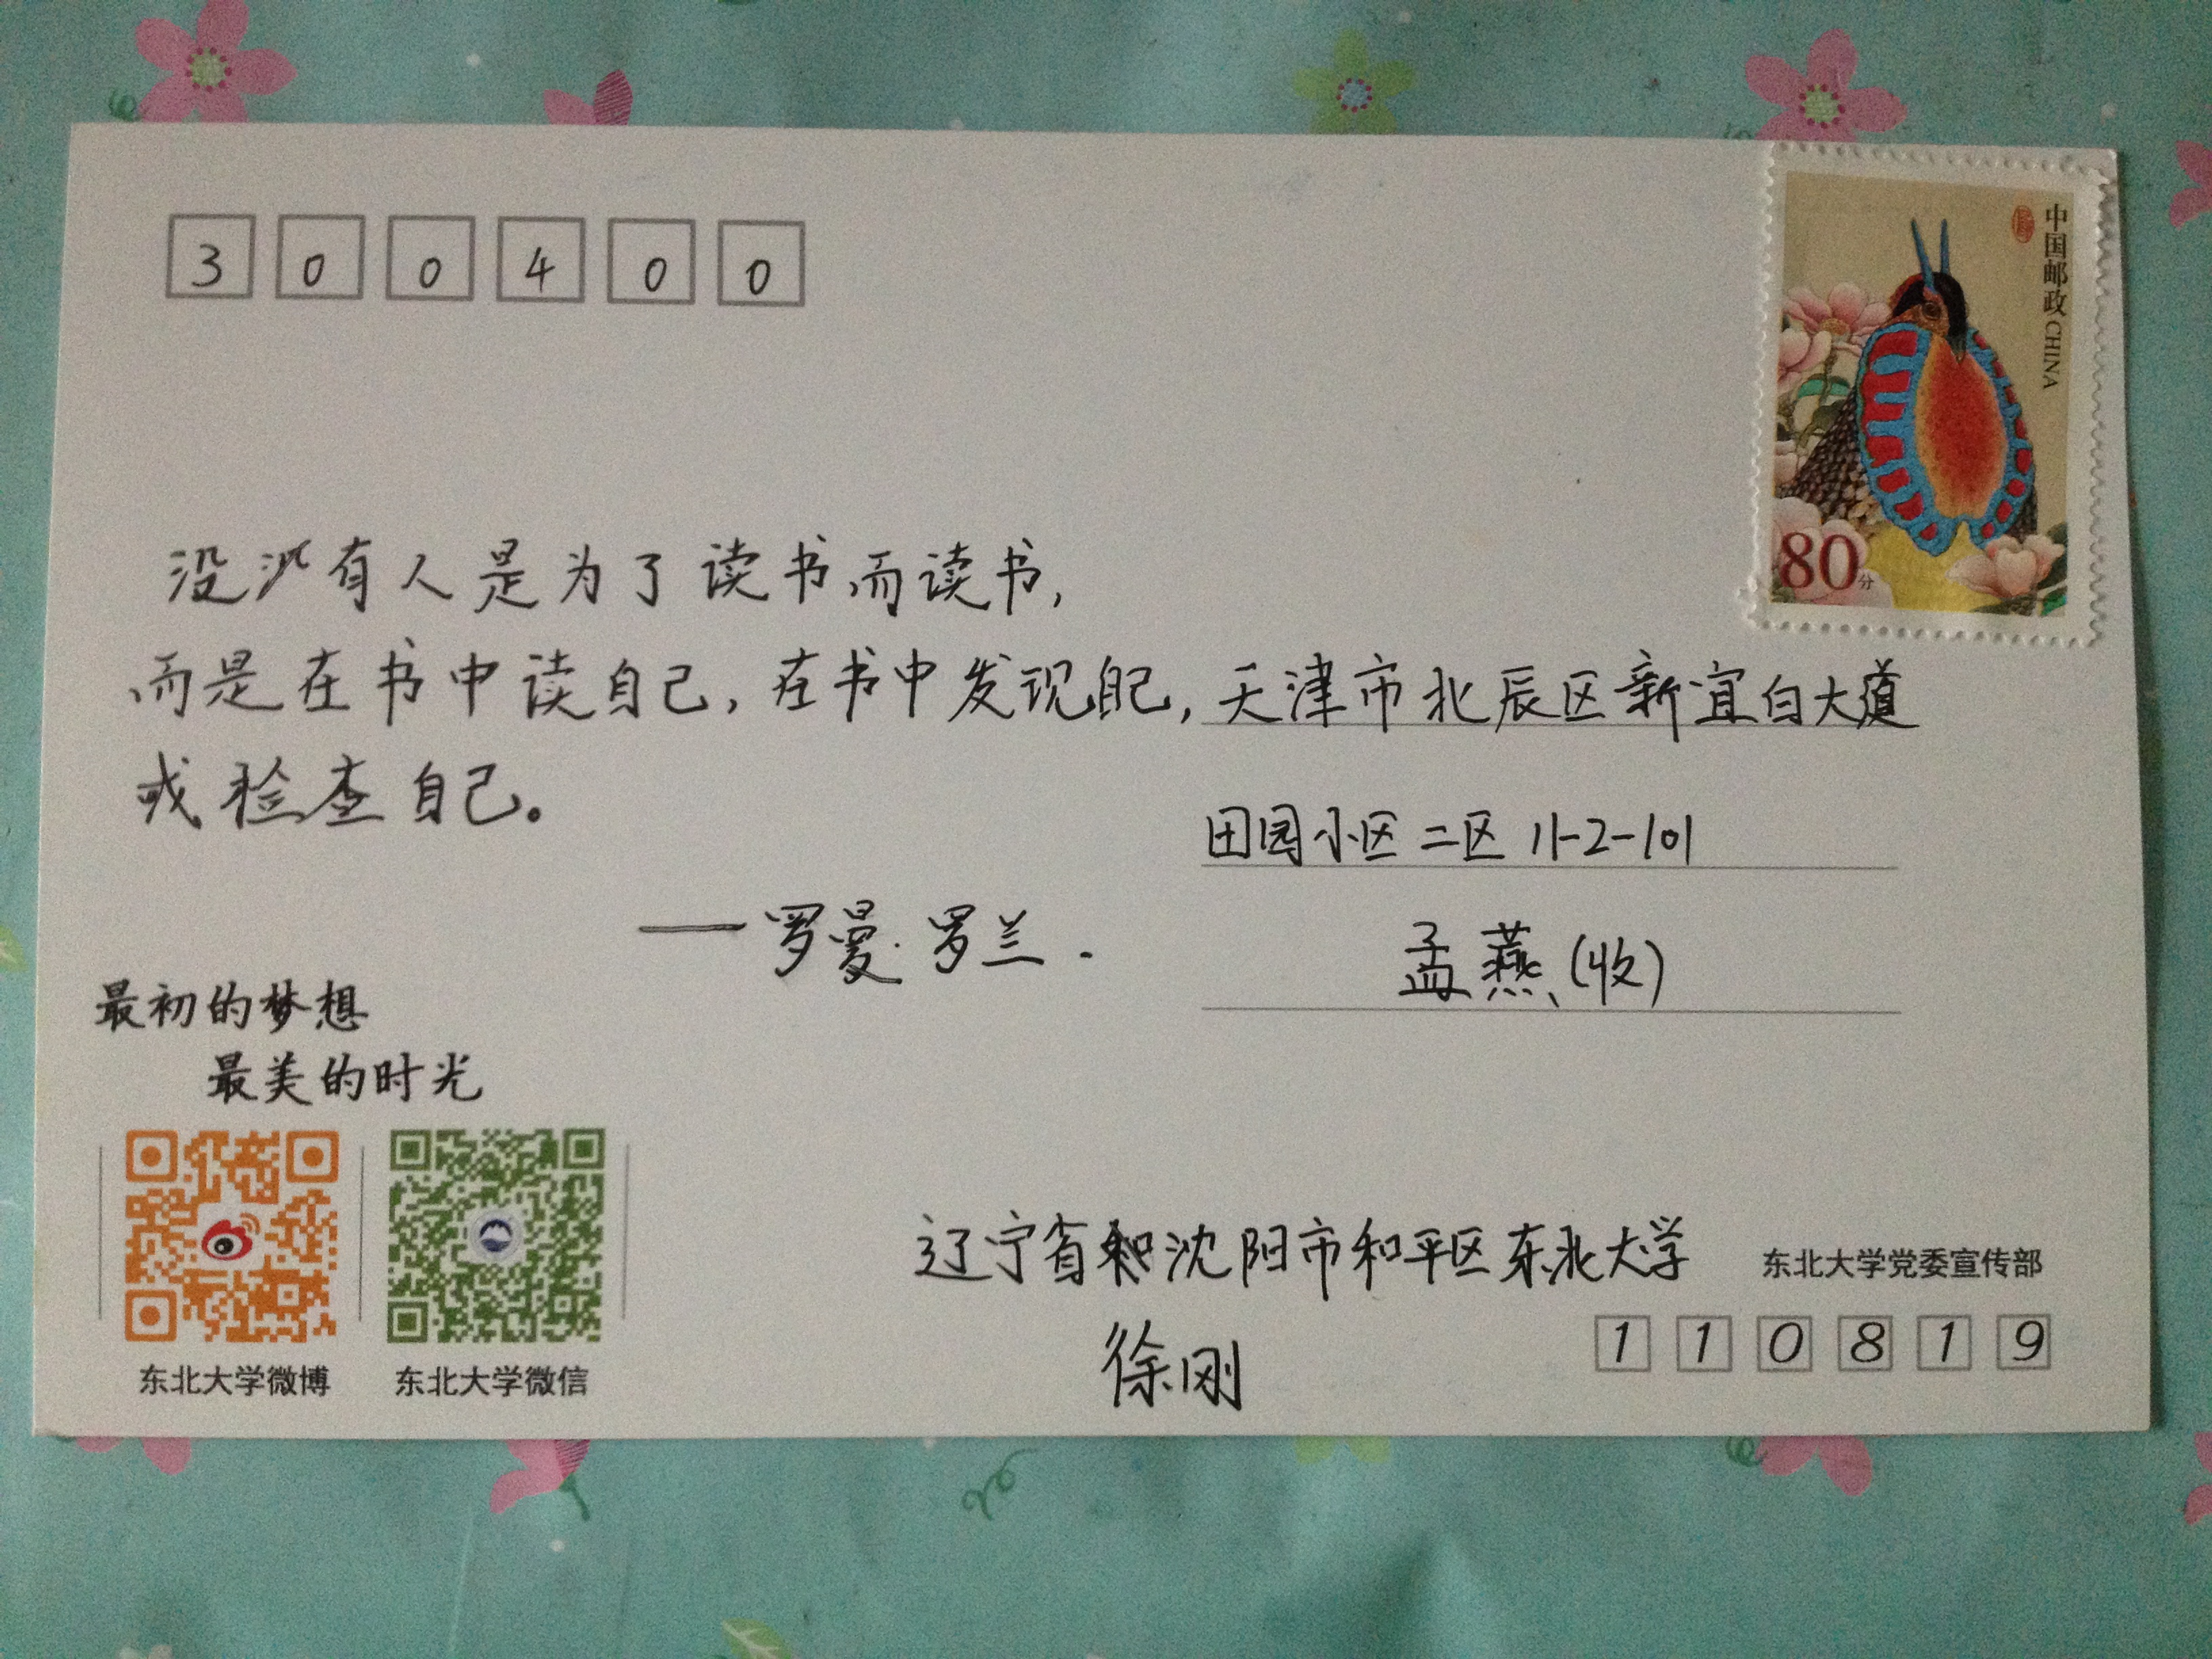 300400
中国邮政 CHINA
80分
没有人是为了读书而读书,
而是在书中读自己,在书中发现自己,
或检查自己。
——罗曼·罗兰.
天津市北辰区新宜白大道
田园小区二区 11-2-101
孟燕(收)
最初的梦想
最美的时光
东北大学微博
东北大学微信
辽宁省沈阳市和平区东北大学
徐刚
东北大学党委宣传部
110819